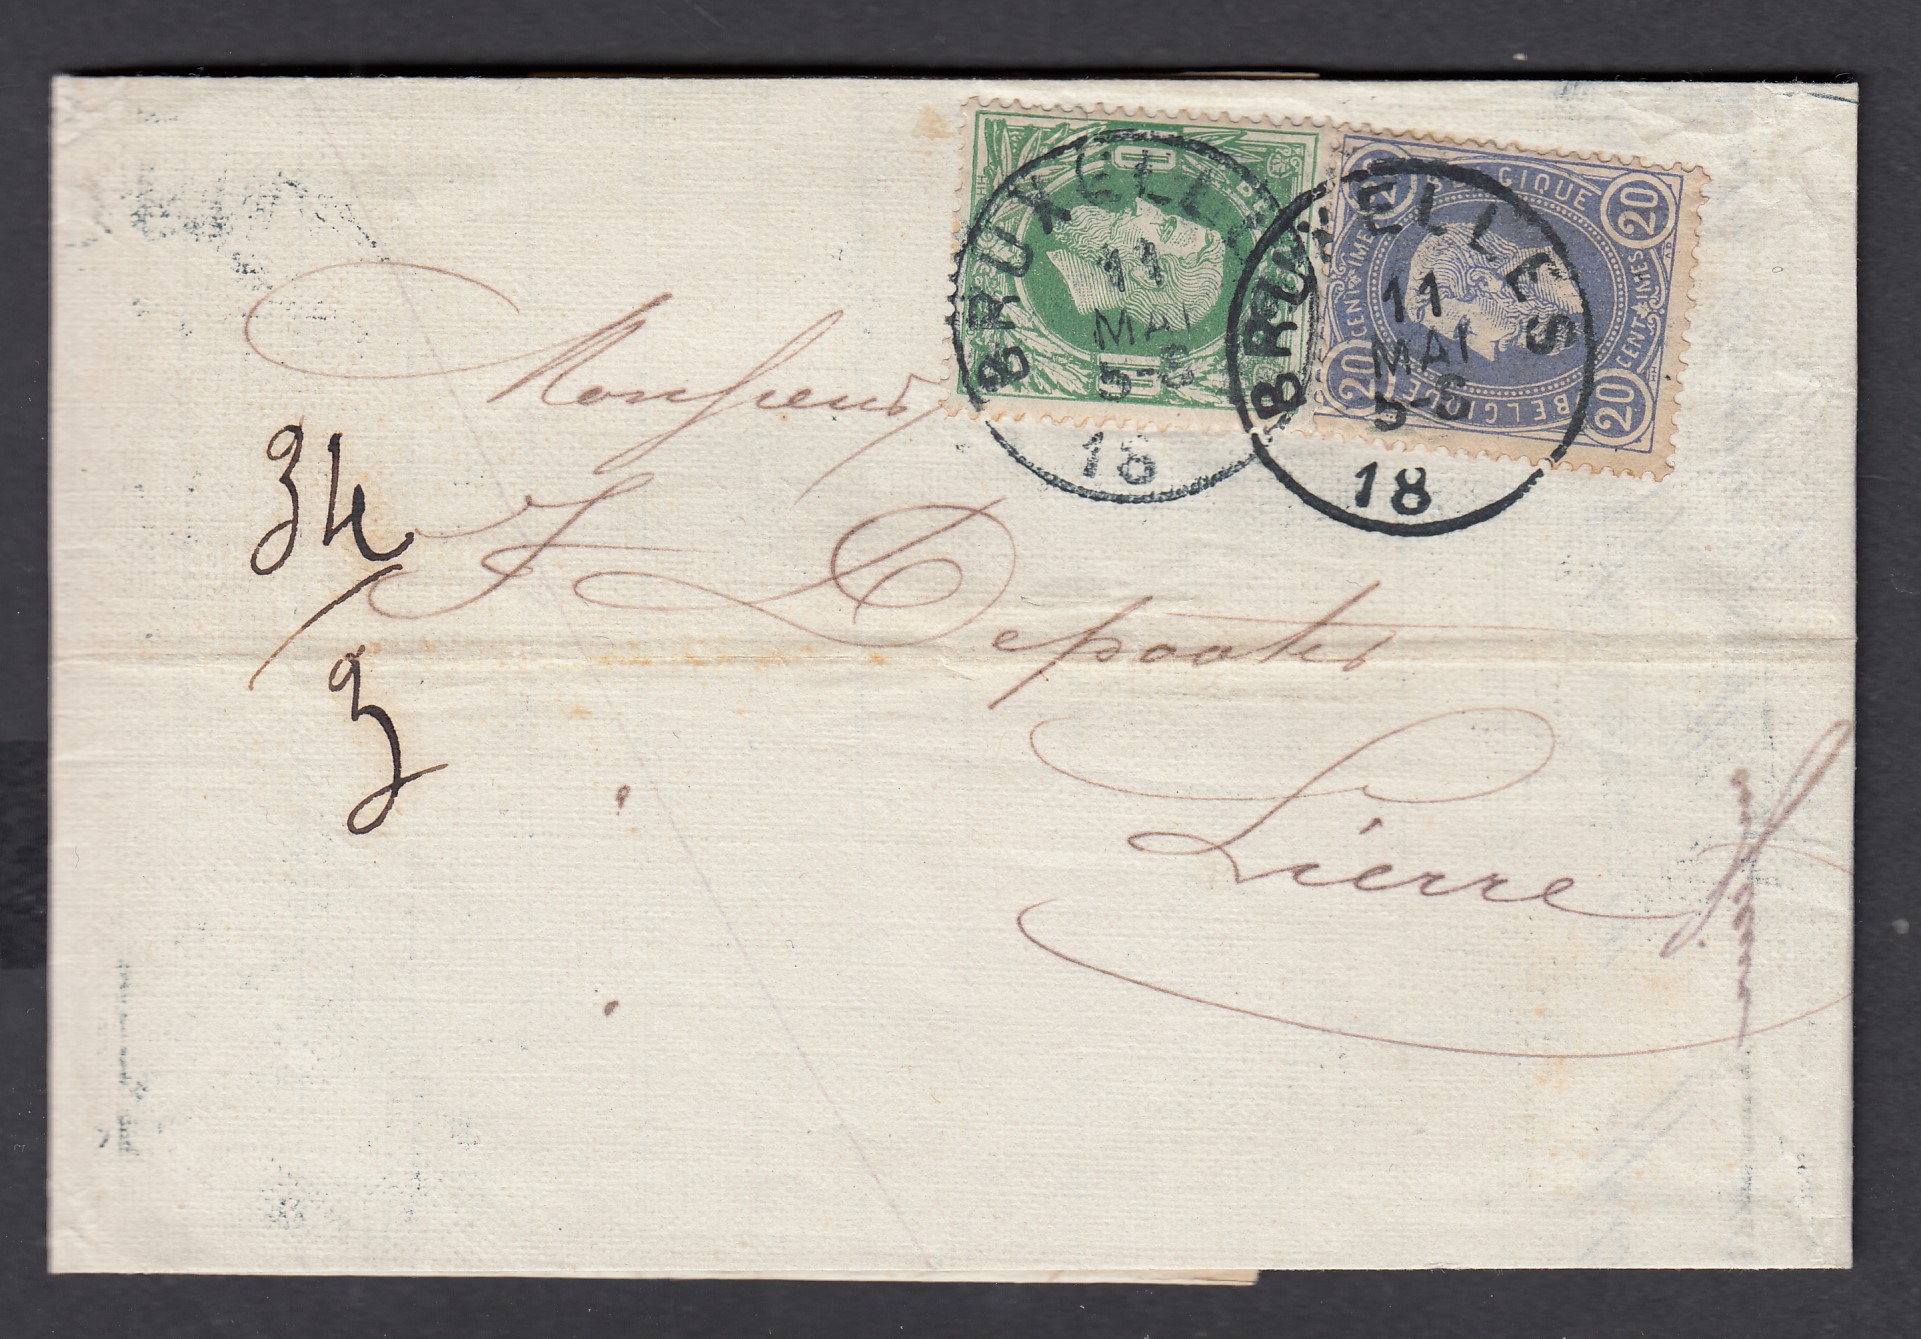 BELGIQUE
20 20 20 20
CENTIMES CENTIMES
BELGIQUE
BRUXELLES
11
MAI
5-6
18
BRUXELLES
11
MAI
5-6
18
Monsieur
J Depooter
Lierre
34
3